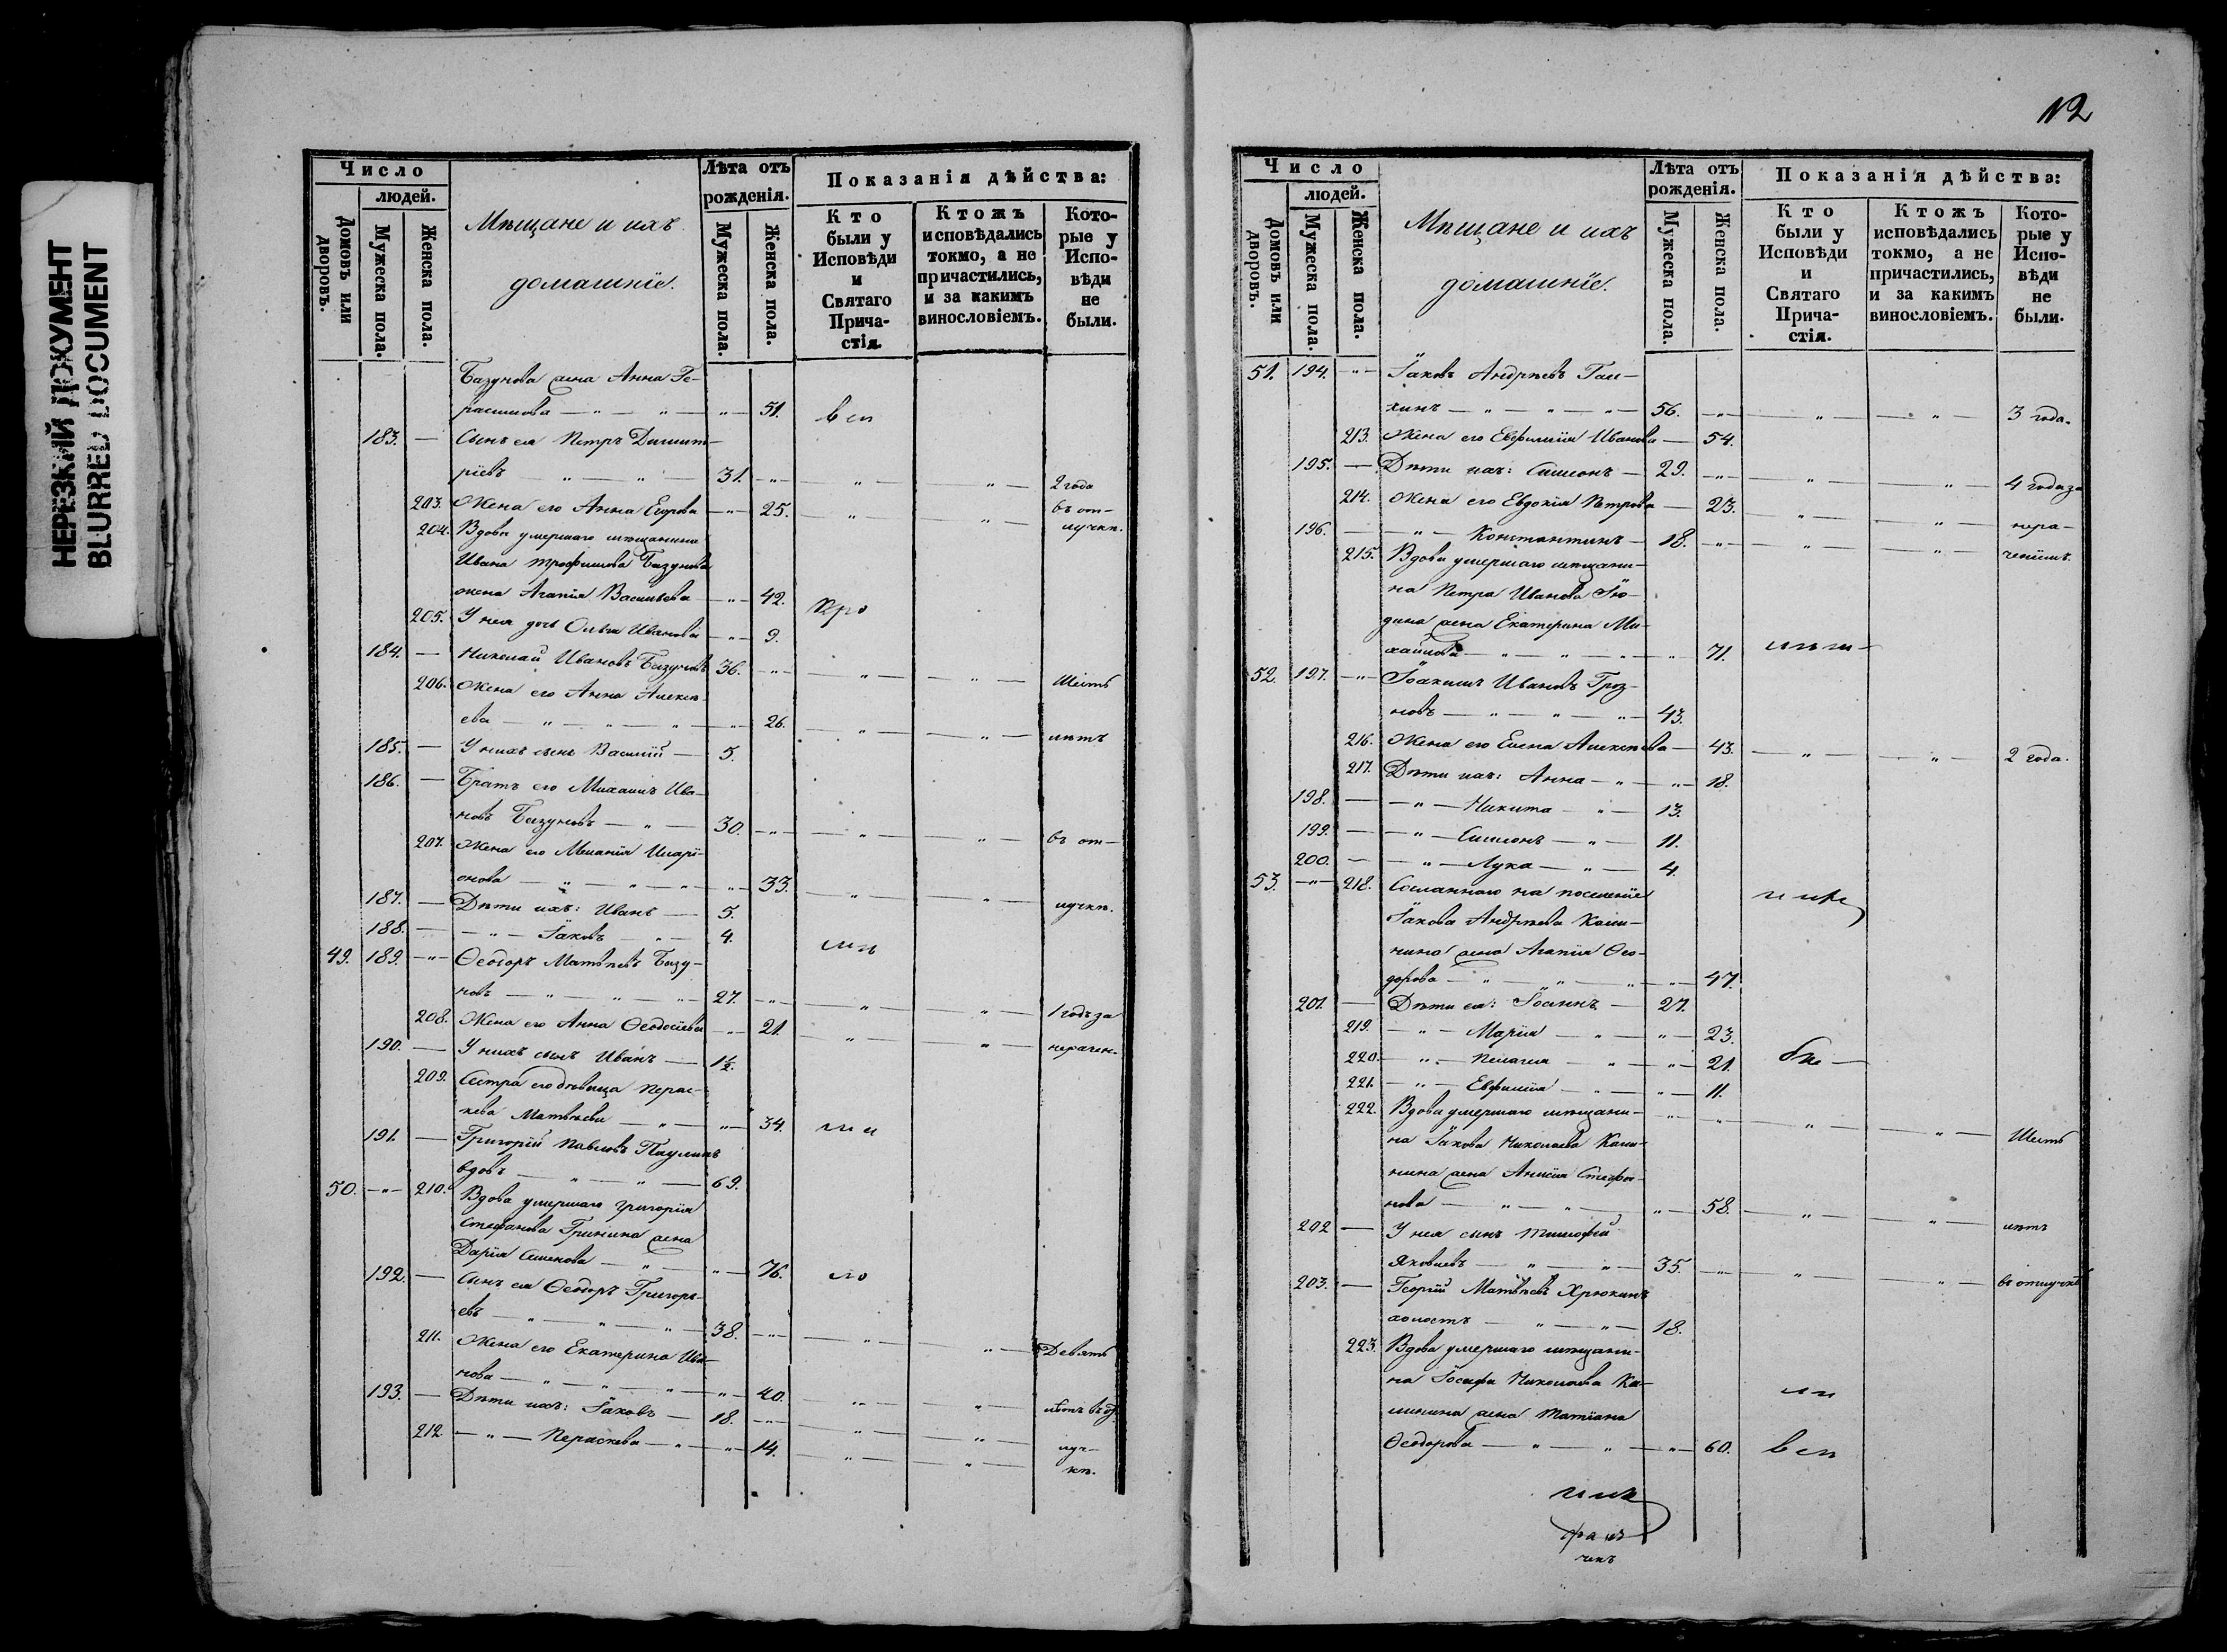 НЕРЕЗКИЙ ДОКУМЕНТ
BLURRED DOCUMENT
Число
людей.
Домовъ или дворовъ.
Мужеска пола.
Женска пола.
Мѣщане и ихъ
домашніе.
Лѣта отъ рожденія.
Мужеска пола.
Женска пола.
Показанія дѣйства:
Кто были у Исповѣди и Святаго Прича-стія.
Ктожъ исповѣдались токмо, а не причастились, и за какимъ винословіемъ.
Кото-рые у Испо-вѣди не были.
Базунова жена Анна Ге-
расимова — " — " — " — 51.
183. — Сынъ ея Петръ Димит-
ріевъ — " — " — 31. — " — " — " — 2 года
203. Жена его Анна Егорова — " — 25. " " въ от-
204. Вдова умершаго мѣщанина лучкѣ.
Ивана Трофимова Базунова
жена Агапія Васильева — " — 42.
205. У нея дочь Ольга Иванова — " — 9.
184. — Николай Ивановъ Базуновъ 36. — " — " — " — Шесть
206. Жена его Анна Алексѣ-
ева — " — " — " — " — 26. — " — " — лѣтъ
185. — У нихъ сынъ Василій — 5.
186. — Братъ его Михаилъ Ива-
новъ Базуновъ — " — 30. — " — " — " — въ от-
207. Жена его Меланія Иларі-
онова — " — " — " — " — 33. — " — " — лучкѣ.
187. — Дѣти ихъ: Иванъ — 5.
188. — " — Іаковъ — " — 4.
49. 189. — " — Ѳеодоръ Матвѣевъ Базу-
новъ — " — " — " — 27. — " — " — " — 1 годъ за
208. Жена его Анна Ѳеодосіева — " — 21. — " — " — нерачен.
190. — У нихъ сынъ Иванъ — 1½.
209. Сестра его дѣвица Перас-
кева Матвѣева — " — " — 34.
191. — Григорій Павловъ
вдовъ — " — " — 69.
50. — " — 210. Вдова умершаго Григорія
Стефанова Гринина жена
Дарія Семенова — " — " — 76.
192. — Сынъ ея Ѳеодоръ Григорь-
евъ — " — " — " — 38. — " — " — " — Девять
211. Жена его Екатерина Ива-
нова — " — " — " — " — 40. — " — " — лѣтъ въ от
193. — Дѣти ихъ: Іаковъ — 18. — " — " — " — луч-
212. — " — Пераскева — " — " — 14. — " — " — кѣ.
Число
людей.
Домовъ или дворовъ.
Мужеска пола.
Женска пола.
Мѣщане и ихъ
домашніе.
Лѣта отъ рожденія.
Мужеска пола.
Женска пола.
Показанія дѣйства:
Кто были у Исповѣди и Святаго Прича-стія.
Ктожъ исповѣдались токмо, а не причастились, и за какимъ винословіемъ.
Кото-рые у Испо-вѣди не были.
51. 194. — " — Іаковъ Андреевъ
— " — " — " — 56. — " — " — " — 3 года.
213. Жена его Евфимія Иванова — 54.
195. — Дѣти ихъ: Симеонъ — 29. — " — " — " — 4 года за
214. Жена его Евдокія Петрова — 23. — " — " — нера-
196. — " — Константинъ — 18. — " — " — " — ченіемъ.
215. Вдова умершаго мѣщани-
на Петра Иванова
жена Екатерина Ми-
хайлова — " — " — " — " — 71.
52. 197. — " — Іоакимъ Ивановъ Гроз-
новъ — " — " — " — 43.
216. Жена его Елена Алексѣева — 43. — " — " — 2 года.
217. Дѣти ихъ: Анна — " — " — 18.
198. — " — Никита — " — 13.
199. — " — Симеонъ — " — 11.
200. — " — Лука — " — 4.
53. — " — 218. Сосланнаго на поселеніе
Іакова Андреева Кали-
нина жена Агапія Ѳео-
дорова — " — " — " — " — 47.
201. — Дѣти ея: Іоаннъ — 27.
219. — " — Марія — " — " — 23.
220. — " — Пелагея — " — " — 21.
221. — " — Евфимія — " — " — 11.
222. Вдова умершаго мѣщани- — " — " — " — " — Шесть
на Іакова Николаева Кали-
нина жена Анисія Стефа-
нова — " — " — " — 58. — " — " — лѣтъ
202 — У нея сынъ Тимофей
Яковлевъ — " — " — 35. — " — " — " — въ отлучкѣ
203. — Георгій Матвѣевъ Хрюкинъ
холостъ — " — " — 18.
223. Вдова умершаго мѣщани-
на Іосифа Николаева Ка-
линина жена Татіана
Ѳеодорова — " — " — " — 60.